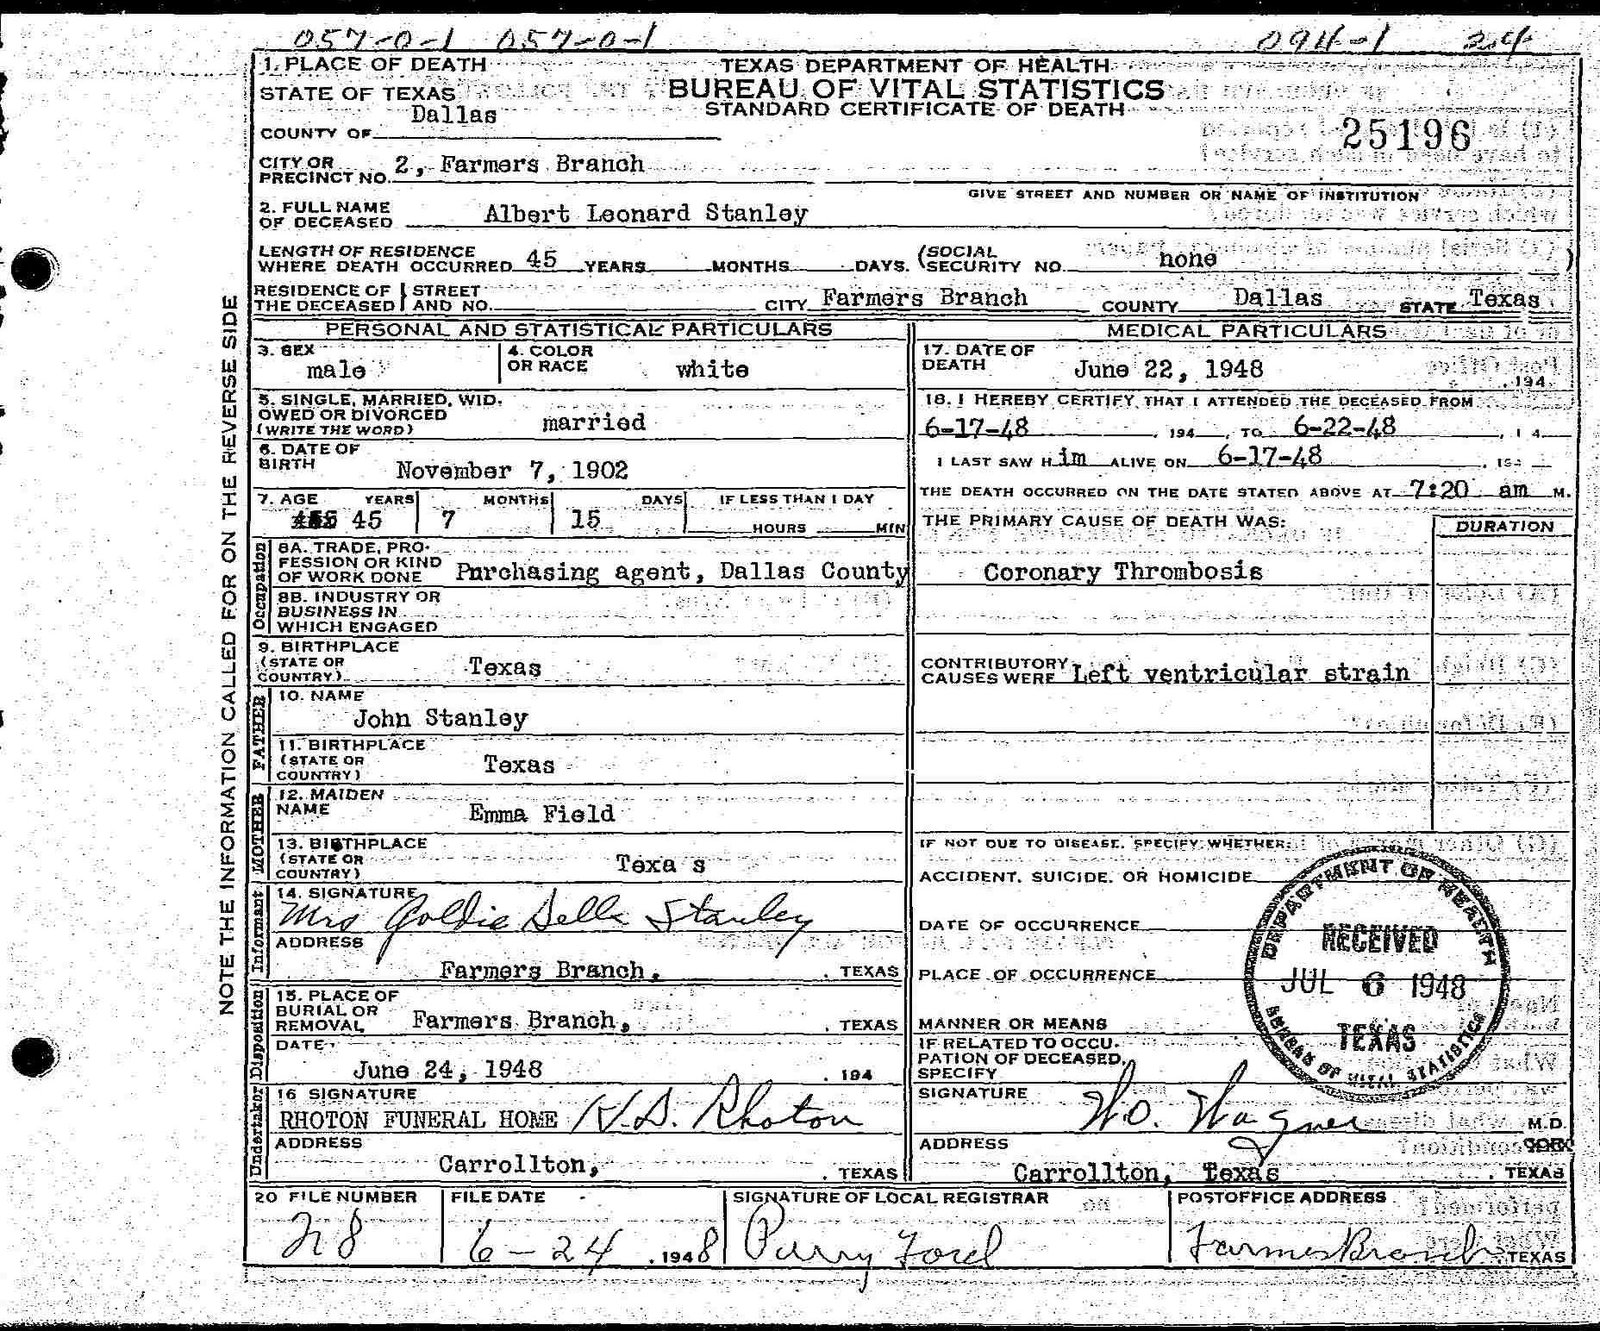 057-0-1 057-0-1 094-1 24
1. PLACE OF DEATH
STATE OF TEXAS
COUNTY OF Dallas
TEXAS DEPARTMENT OF HEALTH
BUREAU OF VITAL STATISTICS
STANDARD CERTIFICATE OF DEATH
25196
CITY OR
PRECINCT NO. 2, Farmers Branch
GIVE STREET AND NUMBER OR NAME OF INSTITUTION
2. FULL NAME
OF DECEASED Albert Leonard Stanley
LENGTH OF RESIDENCE
WHERE DEATH OCCURRED 45 YEARS MONTHS DAYS. (SOCIAL SECURITY NO. none )
RESIDENCE OF THE DECEASED STREET AND NO. CITY Farmers Branch COUNTY Dallas STATE Texas
NOTE THE INFORMATION CALLED FOR ON THE REVERSE SIDE
PERSONAL AND STATISTICAL PARTICULARS
3. SEX male
4. COLOR OR RACE white
5. SINGLE, MARRIED, WID-
OWED OR DIVORCED
(WRITE THE WORD) married
6. DATE OF
BIRTH November 7, 1902
7. AGE YEARS MONTHS DAYS IF LESS THAN 1 DAY
45 7 15 HOURS MIN
Occupation
8A. TRADE, PRO-
FESSION OR KIND
OF WORK DONE Purchasing agent, Dallas County
8B. INDUSTRY OR
BUSINESS IN
WHICH ENGAGED
9. BIRTHPLACE
(STATE OR
COUNTRY) Texas
FATHER
10. NAME
John Stanley
11. BIRTHPLACE
(STATE OR
COUNTRY) Texas
MOTHER
12. MAIDEN
NAME Emma Field
13. BIRTHPLACE
(STATE OR
COUNTRY) Texa s
Informant
14. SIGNATURE
Mrs Goldie Della Stanley
ADDRESS
Farmers Branch, . TEXAS
Disposition
15. PLACE OF
BURIAL OR
REMOVAL Farmers Branch, . TEXAS
DATE
June 24, 1948 . 194
Undertaker
16 SIGNATURE
RHOTON FUNERAL HOME H.D. Rhoton
ADDRESS
Carrollton, . TEXAS
MEDICAL PARTICULARS
17. DATE OF
DEATH June 22, 1948 , 194
18. I HEREBY CERTIFY THAT I ATTENDED THE DECEASED FROM
6-17-48 , 194 , TO 6-22-48
I LAST SAW Him ALIVE ON 6-17-48
THE DEATH OCCURRED ON THE DATE STATED ABOVE AT 7:20 am M.
THE PRIMARY CAUSE OF DEATH WAS: DURATION
Coronary Thrombosis
CONTRIBUTORY
CAUSES WERE Left ventricular strain
IF NOT DUE TO DISEASE, SPECIFY WHETHER:
ACCIDENT, SUICIDE, OR HOMICIDE
DATE OF OCCURRENCE
PLACE OF OCCURRENCE
MANNER OR MEANS
IF RELATED TO OCCU-
PATION OF DECEASED,
SPECIFY
DEPARTMENT OF HEALTH
RECEIVED
JUL 6 1948
TEXAS
BUREAU OF VITAL STATISTICS
SIGNATURE W.O. Wagner M.D.
ADDRESS
Carrollton, Texas . TEXAS
20 FILE NUMBER FILE DATE SIGNATURE OF LOCAL REGISTRAR POSTOFFICE ADDRESS
28 6-24 , 1948 Perry Ford Farmers Branch TEXAS